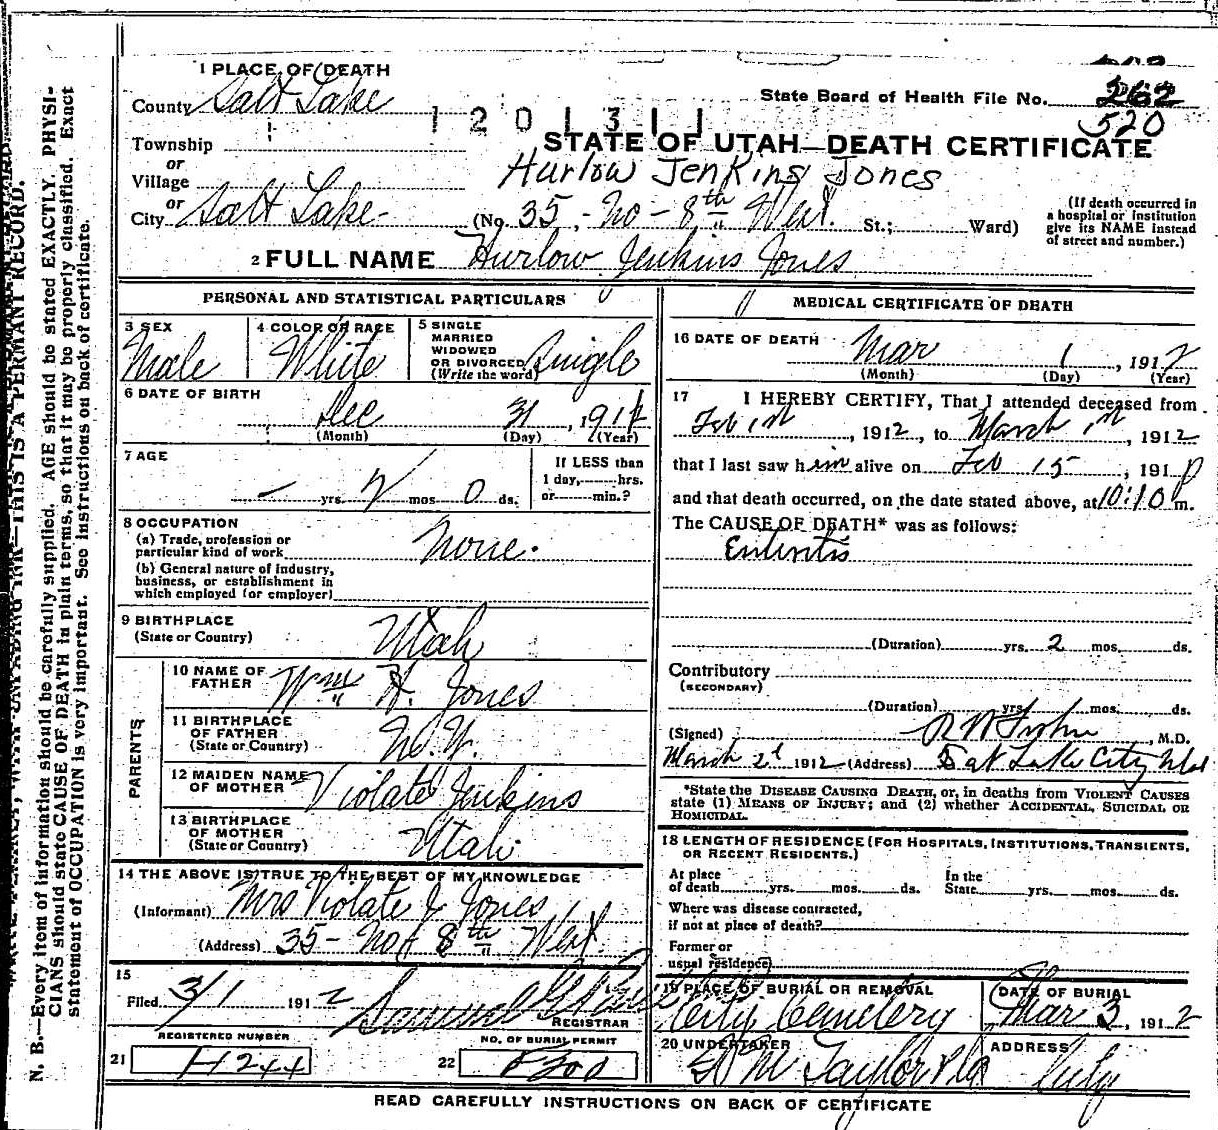 1 PLACE OF DEATH
County Salt Lake
State Board of Health File No. 262
520
1201311
Township
STATE OF UTAH—DEATH CERTIFICATE
or
Village
Harlow Jenkins Jones
or
City Salt Lake (No. 35 - No - 8th West St.; Ward)
(If death occurred in a hospital or institution give its NAME instead of street and number.)
2 FULL NAME Harlow Jenkins Jones
PERSONAL AND STATISTICAL PARTICULARS
3 SEX
Male
4 COLOR OR RACE
White
5 SINGLE
MARRIED
WIDOWED
OR DIVORCED
(Write the word)
Single
6 DATE OF BIRTH
Dec 31, 1911
(Month) (Day) (Year)
7 AGE
— yrs. 2 mos. 0 ds.
If LESS than
1 day, hrs.
or min.?
8 OCCUPATION
(a) Trade, profession or
particular kind of work None.
(b) General nature of industry,
business, or establishment in
which employed (or employer)
9 BIRTHPLACE
(State or Country)
Utah
PARENTS
10 NAME OF
FATHER
Wm H. Jones
11 BIRTHPLACE
OF FATHER
(State or Country)
12 MAIDEN NAME
OF MOTHER
Violate Jenkins
13 BIRTHPLACE
OF MOTHER
(State or Country)
Utah.
14 THE ABOVE IS TRUE TO THE BEST OF MY KNOWLEDGE
(Informant) Mrs Violate J Jones
(Address) 35 - No - 8th West
15
Filed 3/1 1912
Samuel G
REGISTRAR
REGISTERED NUMBER
21 H244
NO. OF BURIAL PERMIT
22
MEDICAL CERTIFICATE OF DEATH
16 DATE OF DEATH
Mar 1, 1912
(Month) (Day) (Year)
17 I HEREBY CERTIFY, That I attended deceased from
Feb 1st, 1912, to March 1st, 1912
that I last saw him alive on Feb 15, 191
and that death occurred, on the date stated above, at 10:10 P m.
The CAUSE OF DEATH* was as follows:
Enteritis
(Duration) yrs. 2 mos. ds.
Contributory
(SECONDARY)
(Duration) yrs. mos. ds.
(Signed) , M.D.
March 2d 1912 (Address) Salt Lake City Utah
*State the DISEASE CAUSING DEATH, or, in deaths from VIOLENT CAUSES
state (1) MEANS OF INJURY; and (2) whether ACCIDENTAL, SUICIDAL OR
HOMICIDAL.
18 LENGTH OF RESIDENCE (FOR HOSPITALS, INSTITUTIONS, TRANSIENTS,
OR RECENT RESIDENTS.)
At place
of death yrs. mos. ds.
In the
State yrs. mos. ds.
Where was disease contracted,
if not at place of death?
Former or
usual residence
19 PLACE OF BURIAL OR REMOVAL
City Cemetery
DATE OF BURIAL
Mar 3, 1912
20 UNDERTAKER
S M Taylor & Co
ADDRESS
City
READ CAREFULLY INSTRUCTIONS ON BACK OF CERTIFICATE
THIS IS A PERMANT RECORD.
N. B.—Every item of information should be carefully supplied. AGE should be stated EXACTLY. PHYSI-
CIANS should state CAUSE OF DEATH in plain terms, so that it may be properly classified. Exact
statement of OCCUPATION is very important. See instructions on back of certificate.